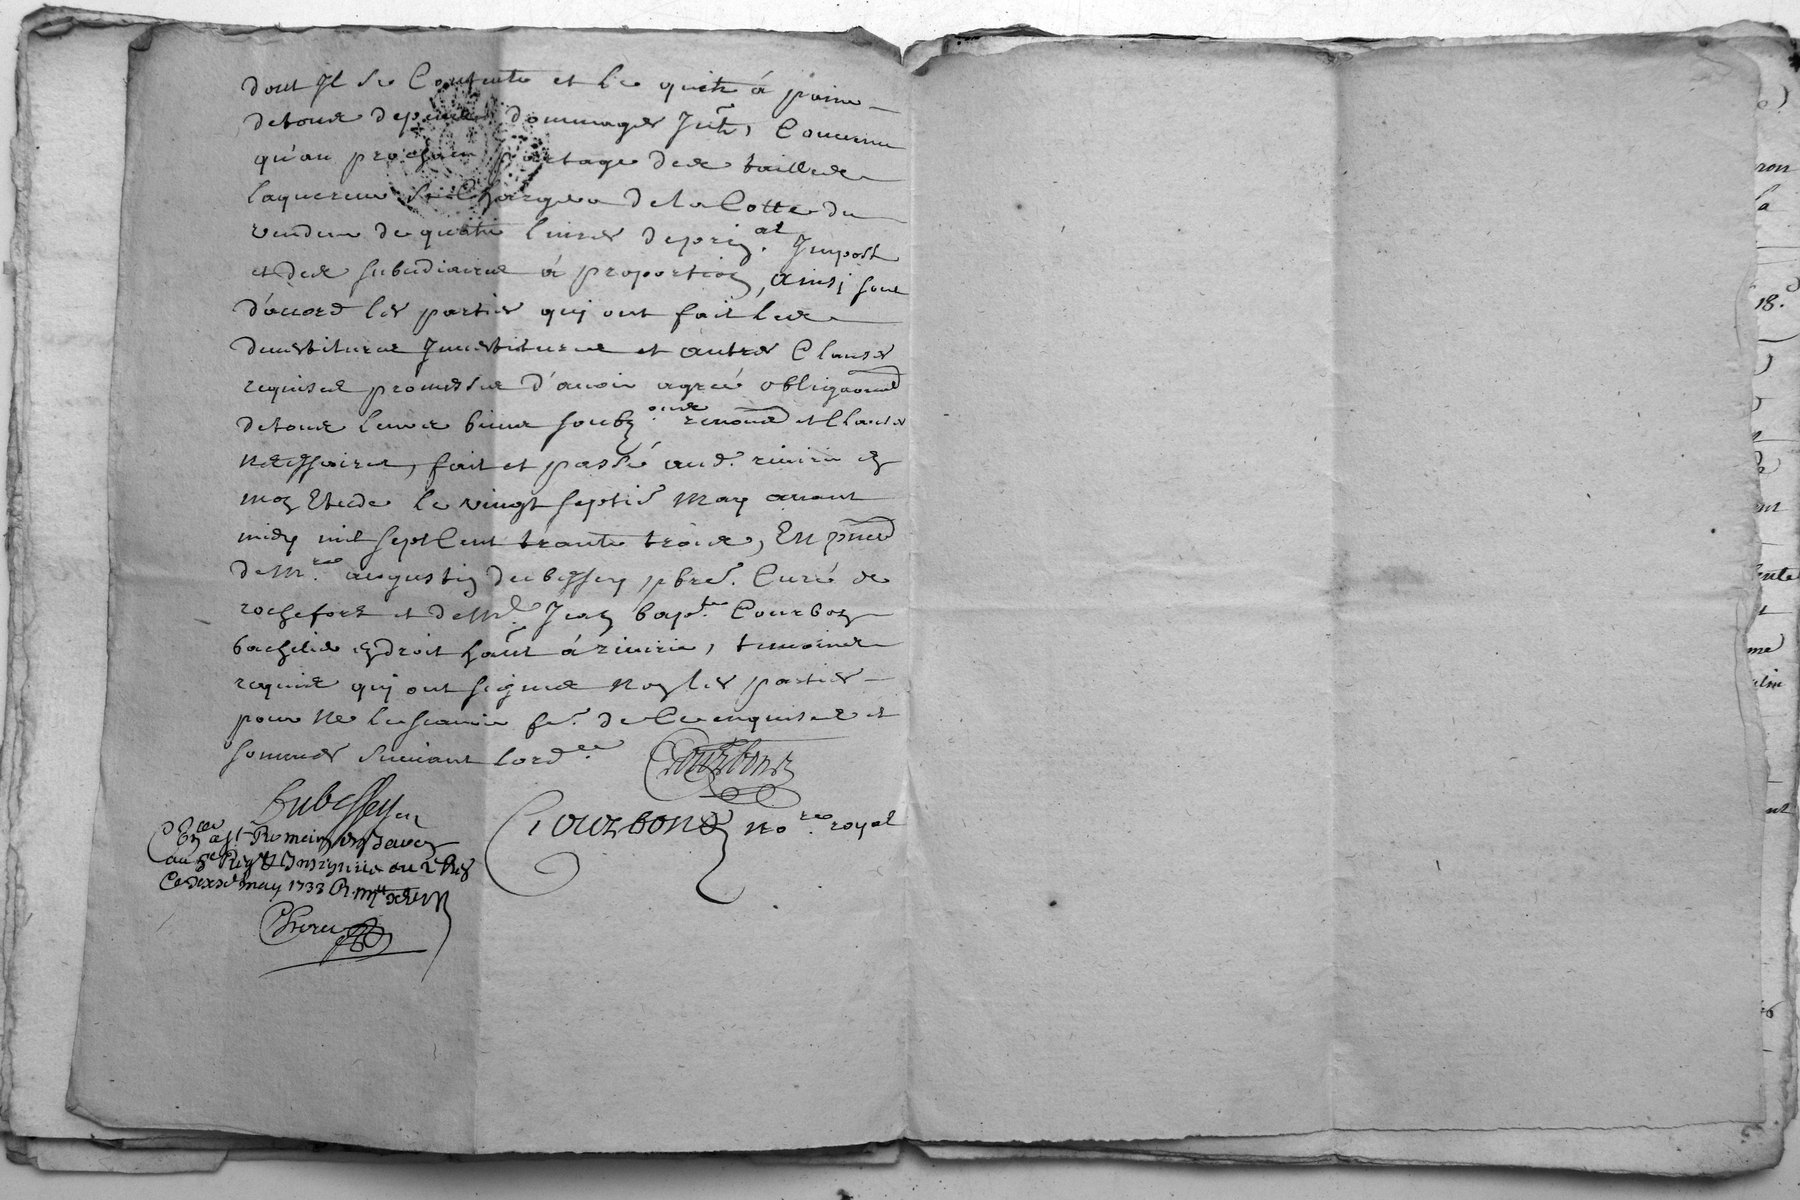 dont Il se Contente et l'e quitte á peine
detous depens dommages Intts, Convenu
qu'au prochain partage des tailles
laquereur se Chargera dela Cotte du
vendeur de quatre livres deprinal Impost
et des subsidiaires á proportion, ainsi sont
d'acord les parties quj ont fait les
devestitures Jnvestitures et autres Clauses
requises promesses d'avoir agreé obligaons
detous leurs biens soubzons renons et Clauses
necessaires, fait et passé aud. riverie en
mon Etude le vingt septie May avant
midy mil sept Cent trante trois, En pnce
de Mre augustin dubessey pbre. Curé de
rochefort et de Mr Jean bapte Courbon
bachelier en droit hant á riverie, temoins
requis quj ont signes non les parties
pour ne le scavoir fe. de Ce enquises et
sommes suivant lordce.
Courbon
Dubessey
Courbon nore royal
a St Romein
au
Ce may 1733